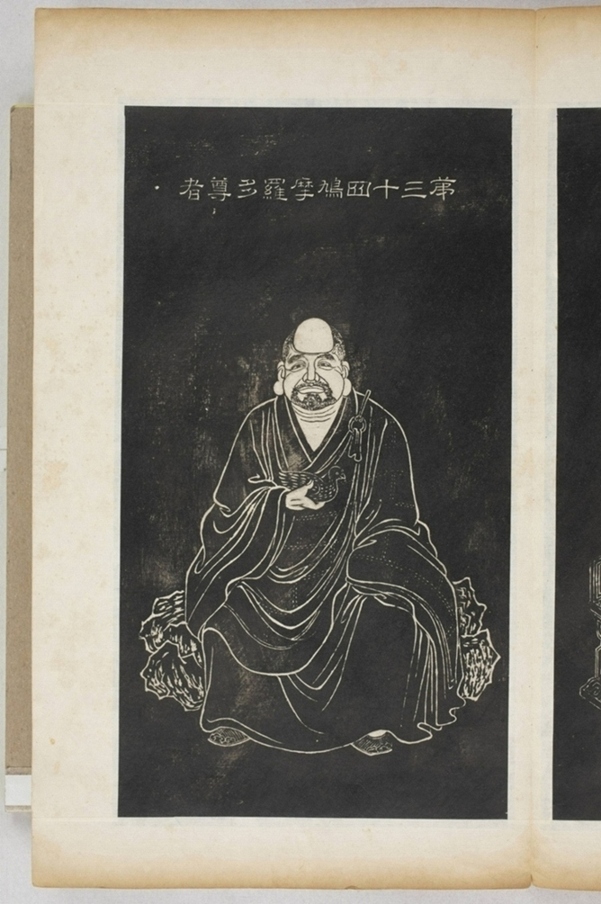 第三十四鳩摩羅多尊者